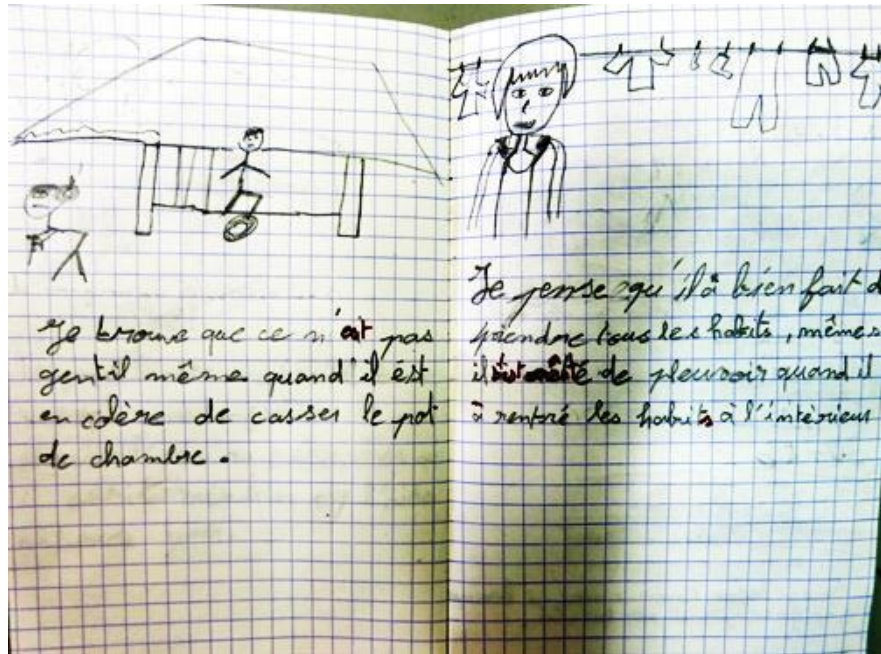 Je trouve que ce n'est pas
gentil même quand il ést
en colère de casser le pot
de chambre.
Je pense qu'il à bien fait d
prendre tous les habits, même s
il de pleuvoir quand il
à rentré les habits à l'intérieur